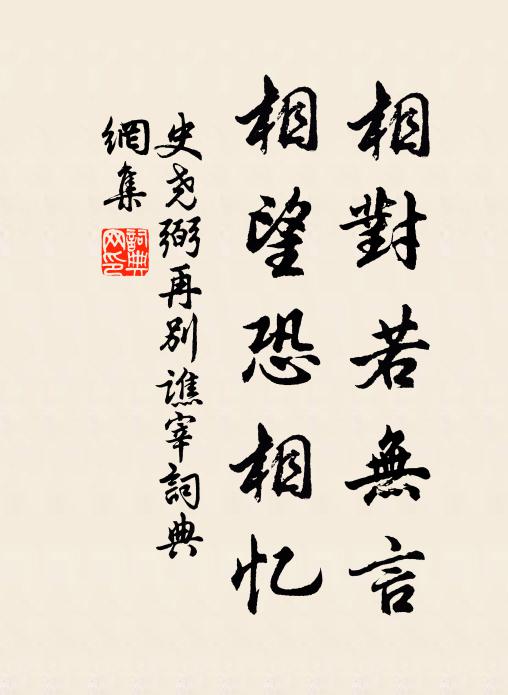 相對若無言
相望恐相忆
史尧弼再別譙宰詞典
網集
詞典网印